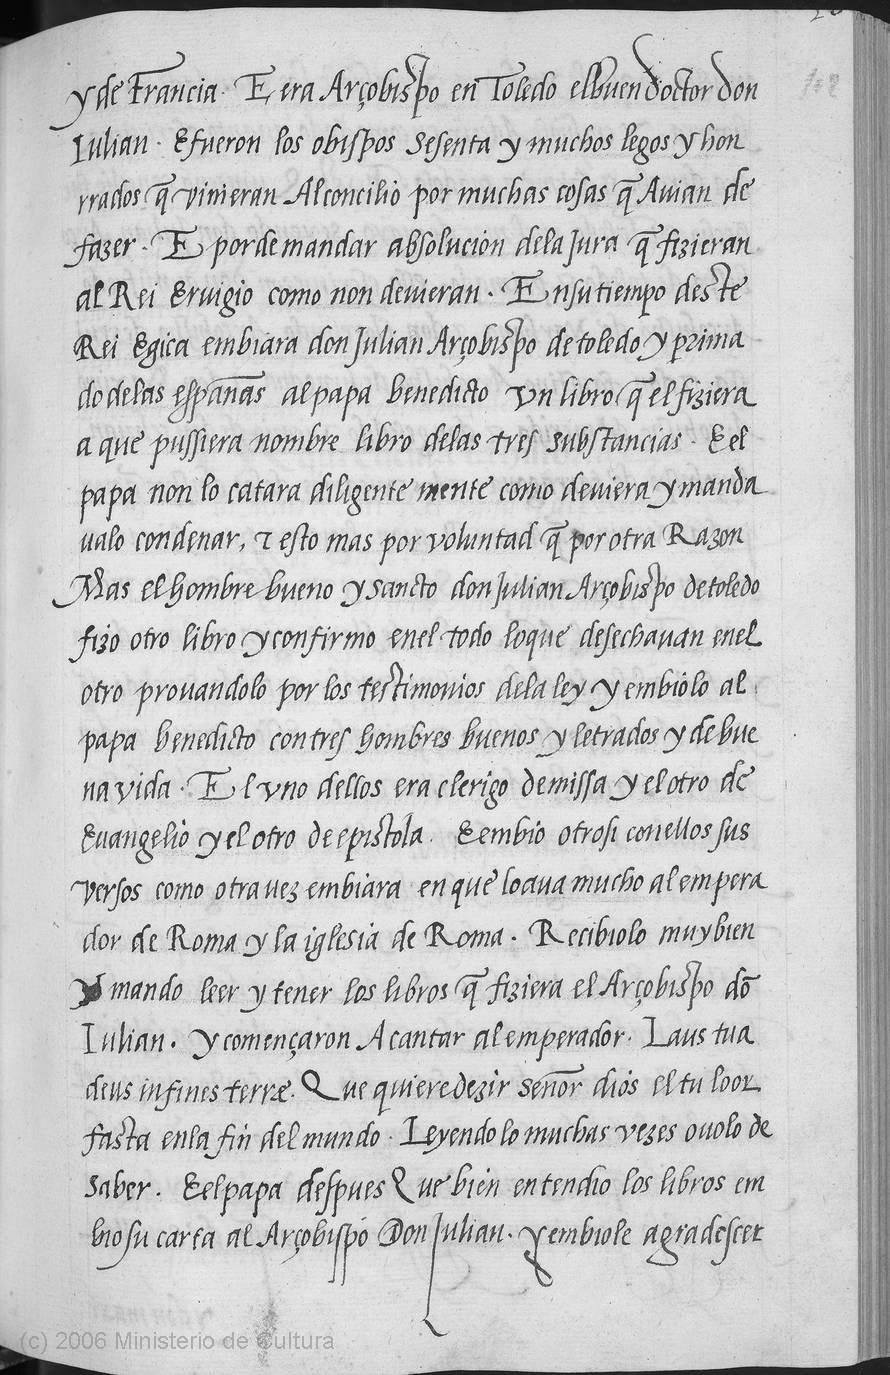 y de Francia. E era Arçobispo en Toledo el buen doctor don
Iulian. E fueron los obispos sesenta y muchos legos y hon
rrados q̃ vinieran Al concilio por muchas cosas q̃ Auian de
fazer. E por demandar absolucion dela Jura q̃ fizieran
al Rei Eruigio como non deuieran. En su tiempo deste
Rei Egica embiara don Julian Arçobispo de toledo y prima
do delas españas al papa benedicto vn libro q̃ el fiziera
a que pussiera nombre libro delas tres substancias. E el
papa non lo catara diligente mente como deuiera y manda
ualo condenar, τ esto mas por voluntad q̃ por otra Razon
Mas el hombre bueno y sancto don Julian Arçobispo de toledo
fizo otro libro y confirmo enel todo loque desechauan enel
otro prouandolo por los testimonios dela ley y embiolo al
papa benedicto con tres hombres buenos y letrados y de bue
na vida. El vno dellos era clerigo de missa y el otro de
Euangelio y el otro de epistola. E embio otrosi conellos sus
versos como otra vez embiara en que loaua mucho al empera
dor de Roma y la iglesia de Roma. Recibiolo muy bien
y mando leer y tener los libros q̃ fiziera el Arçobispo dõ
Iulian. y començaron A cantar al emperador. Laus tua
deus in fines terræ. Que quiere dezir señor dios el tu loor
fasta enla fin del mundo. Leyendo lo muchas vezes ouolo de
saber. E el papa despues Que bien entendio los libros em
bio su carta al Arçobispo Don Julian. y embiole agradescer
(c) 2006 Ministerio de Cultura